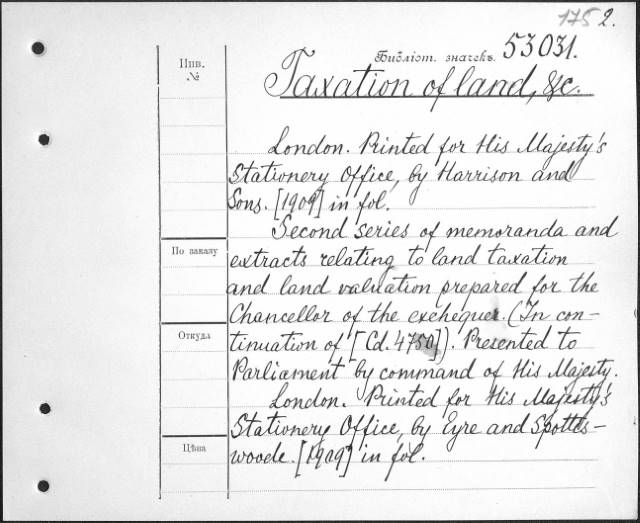 175 2.
Инв.
№
Библіот. значекъ. 53031.
Taxation of land, &c.
London. Printed for His Majesty's
Stationery Office, by Harrison and
Sons. [1909] in fol.
Second series of memoranda and
По заказу
extracts relating to land taxation
and land valuation prepared for the
Chancellor of the exchequer. (In con-
Откуда
tinuation of [Cd. 4750]). Presented to
Parliament by command of His Majesty.
London. Printed for His Majesty's
Stationery Office, by Eyre and Spottis-
Цѣна
woode. [1909] in fol.